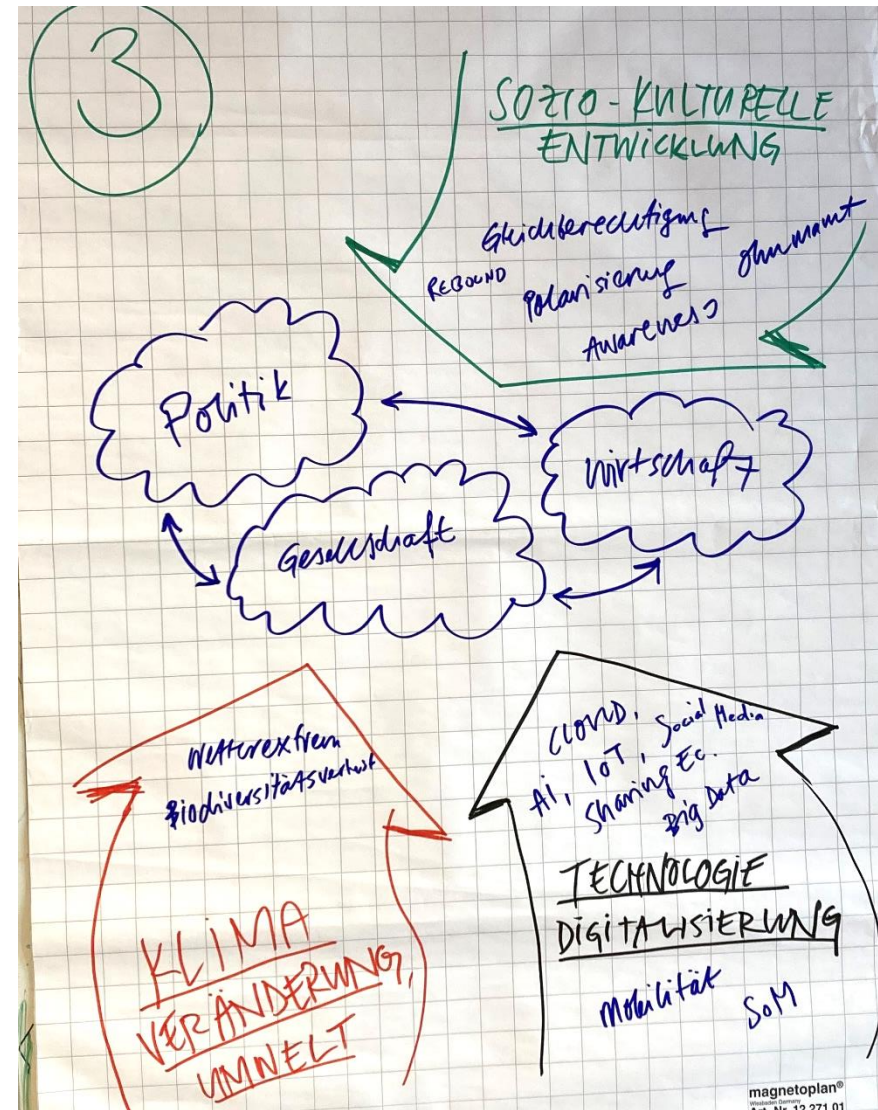 3
SOZIO-KULTURELLE
ENTWICKLUNG
Gleichberechtigung
REBOUND
Polarisierung
Ohnmamt
Awareness
Politik
Wirtschaft
Gesellschaft
Wetterextrem
Biodiversitätsverlust
CLOUD,
Social Media
AI, IOT,
Sharing Ec.
Big Data
TECHNOLOGIE
DIGITALISIERUNG
Mobilität
SoM
KLIMA
VERÄNDERUNG,
UMWELT
magnetoplan®
Wiesbaden Germany
Art.-Nr. 12 271 01